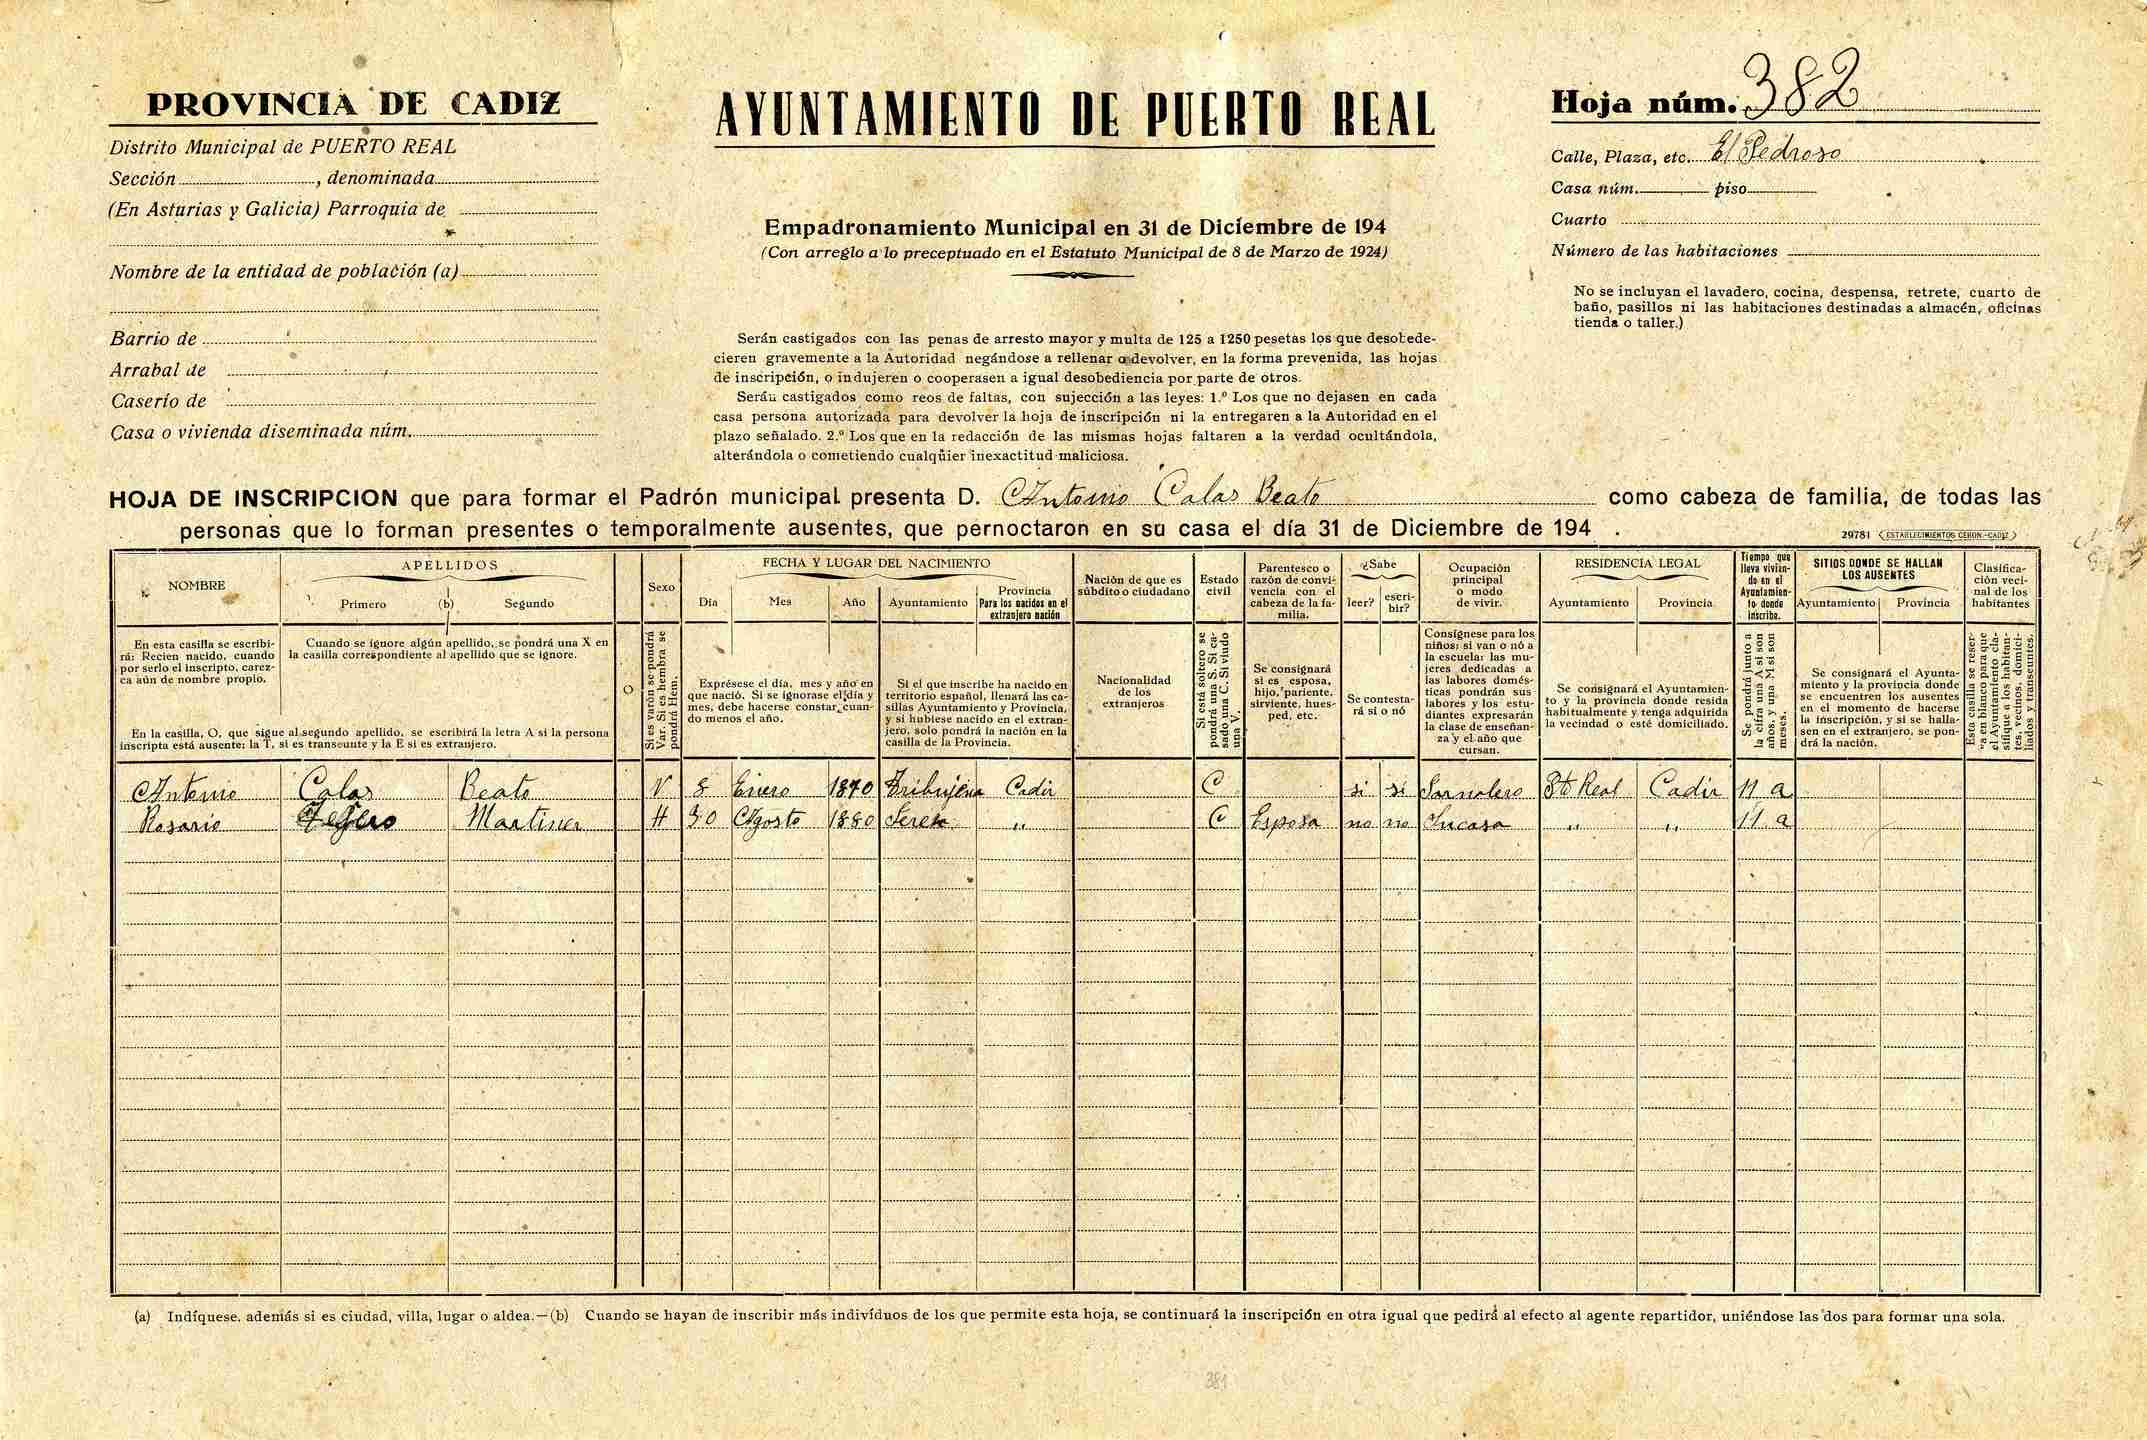 PROVINCIA DE CADIZ
Distrito Municipal de PUERTO REAL
Sección, denominada
(En Asturias y Galicia) Parroquia de
Nombre de la entidad de población (a)
Barrio de
Arrabal de
Caserío de
Casa o vivienda diseminada núm.
AYUNTAMIENTO DE PUERTO REAL
Empadronamiento Municipal en 31 de Diciembre de 194
(Con arreglo a lo preceptuado en el Estatuto Municipal de 8 de Marzo de 1924)
Serán castigados con las penas de arresto mayor y multa de 125 a 1250 pesetas los que desobede-
cieren gravemente a la Autoridad negándose a rellenar o devolver, en la forma prevenida, las hojas
de inscripción, o indujeren o cooperasen a igual desobediencia por parte de otros.
Serán castigados como reos de faltas, con sujección a las leyes: 1.º Los que no dejasen en cada
casa persona autorizada para devolver la hoja de inscripción ni la entregaren a la Autoridad en el
plazo señalado. 2.º Los que en la redacción de las mismas hojas faltaren a la verdad ocultándola,
alterándola o cometiendo cualquier inexactitud maliciosa.
Hoja núm. 382
Calle, Plaza, etc. El Pedroso
Casa núm. piso
Cuarto
Número de las habitaciones
No se incluyan el lavadero, cocina, despensa, retrete, cuarto de
baño, pasillos ni las habitaciones destinadas a almacén, oficinas
tienda o taller.)
HOJA DE INSCRIPCION que para formar el Padrón municipal presenta D. Antonio Calas Beato como cabeza de familia, de todas las
personas que lo forman presentes o temporalmente ausentes, que pernoctaron en su casa el día 31 de Diciembre de 194 .
29781 (ESTABLECIMIENTOS CERON.-CADIZ)
NOMBRE
APELLIDOS
Primero (b) Segundo
Sexo
FECHA Y LUGAR DEL NACIMIENTO
Día Mes Año Ayuntamiento
Provincia
Para los nacidos en el
extranjero nación
Nación de que es
súbdito o ciudadano
Estado
civil
Parentesco o
razón de convi-
vencia con el
cabeza de la fa-
milia.
¿Sabe
leer? escri-
bir?
Ocupación
principal
o modo
de vivir.
RESIDENCIA LEGAL
Ayuntamiento Provincia
Tiempo que
lleva vivien-
do en el
Ayuntamien-
to donde
inscribe.
SITIOS DONDE SE HALLAN
LOS AUSENTES
Ayuntamiento Provincia
Clasifica-
ción veci-
nal de los
habitantes
En esta casilla se escribi-
rá: Recien nacido, cuando
por serlo el inscripto, carez-
ca aún de nombre propio.
Cuando se ignore algún apellido, se pondrá una X en
la casilla correspondiente al apellido que se ignore.
En la casilla, O, que sigue al segundo apellido, se escribirá la letra A si la persona
inscripta está ausente; la T, si es transeunte y la E si es extranjero.
O
Si es varón se pondrá
Var. Si es hembra se
pondrá Hem.
Exprésese el día, mes y año en
que nació. Si se ignorase el día y
mes, debe hacerse constar cuan-
do menos el año.
Si el que inscribe ha nacido en
territorio español, llenará las ca-
sillas Ayuntamiento y Provincia,
y si hubiese nacido en el extran-
jero, solo pondrá la nación en la
casilla de la Provincia.
Nacionalidad
de los
extranjeros
Si está soltero se
pondrá una S. Si ca-
sado una C. Si viudo
una V.
Se consignará
si es esposa,
hijo, pariente,
sirviente, hues-
ped, etc.
Se contesta-
rá si o nó
Consígnese para los
niños: si van o nó a
la escuela: las mu-
jeres dedicadas a
las labores domés-
ticas pondrán sus
labores y los estu-
diantes expresarán
la clase de enseñan-
za y el año que
cursan.
Se consignará el Ayuntamien-
to y la provincia donde resida
habitualmente y tenga adquirida
la vecindad o esté domiciliado.
Se pondrá junto a
la cifra una A si son
años, y una M si son
meses.
Se consignará el Ayunta-
miento y la provincia donde
se encuentren los ausentes
en el momento de hacerse
la inscripción, y si se halla-
sen en el extranjero, se pon-
drá la nación.
Esta casilla se reser-
va en blanco para que
el Ayuntamiento cla-
sifique a los habitan-
tes, vecinos, domici-
liados y transeuntes.
Antonio Calas Beato V 8 Enero 1870 Tribujena Cadiz C si si Jornalero Pto Real Cadiz 11 a
Rosario Martinez H 30 Agosto 1880 Jerez " C Esposa no no Su casa " " 11 a
(a) Indíquese, además si es ciudad, villa, lugar o aldea.—(b) Cuando se hayan de inscribir más indivíduos de los que permite esta hoja, se continuará la inscripción en otra igual que pedirá al efecto al agente repartidor, uniéndose las dos para formar una sola.
381